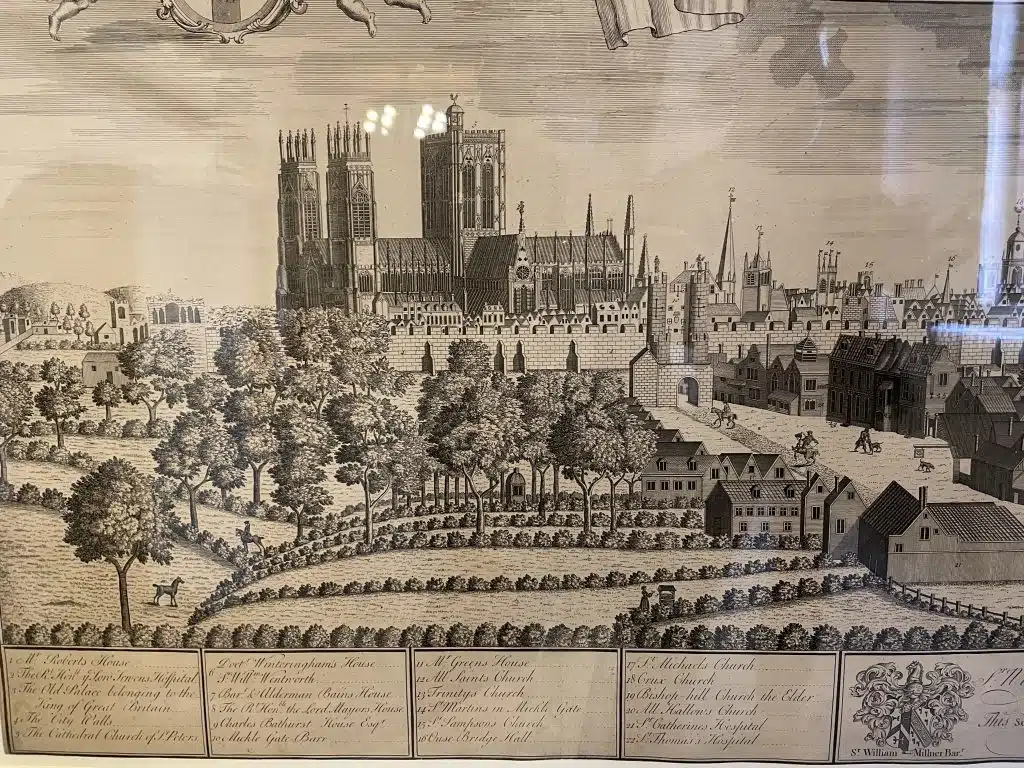 12
14
15
16
21
1 Mr. Roberts House
2 The Rt. Honble. ye Low Jewens Hospital
3 The Old Palace belonging to the
King of Great Britain
4 The City Walls
5 The Cathedral Church of St. Peters
Doctr. Winteringhams House
Sr. Willm. Wentworth
7 Barr. & Alderman Bains House
8 The Rt. Honble. the Lord Mayors House
9 Charles Bathurst House Esqr.
10 Mickle Gate Barr
11 Mr. Greens House
12 All Saints Church
13 Trinitys Church
14 St. Martins in Mickle Gate
15 St. Sampsons Church
16 Ouse Bridge Hall
17 St. Michaels Church
18 Crux Church
19 Bishop-hill Church the Elder
20 All Hallows Church
21 St. Catherines Hospital
22 St. Thomas's Hospital
Sr. William Millner Bart.
This